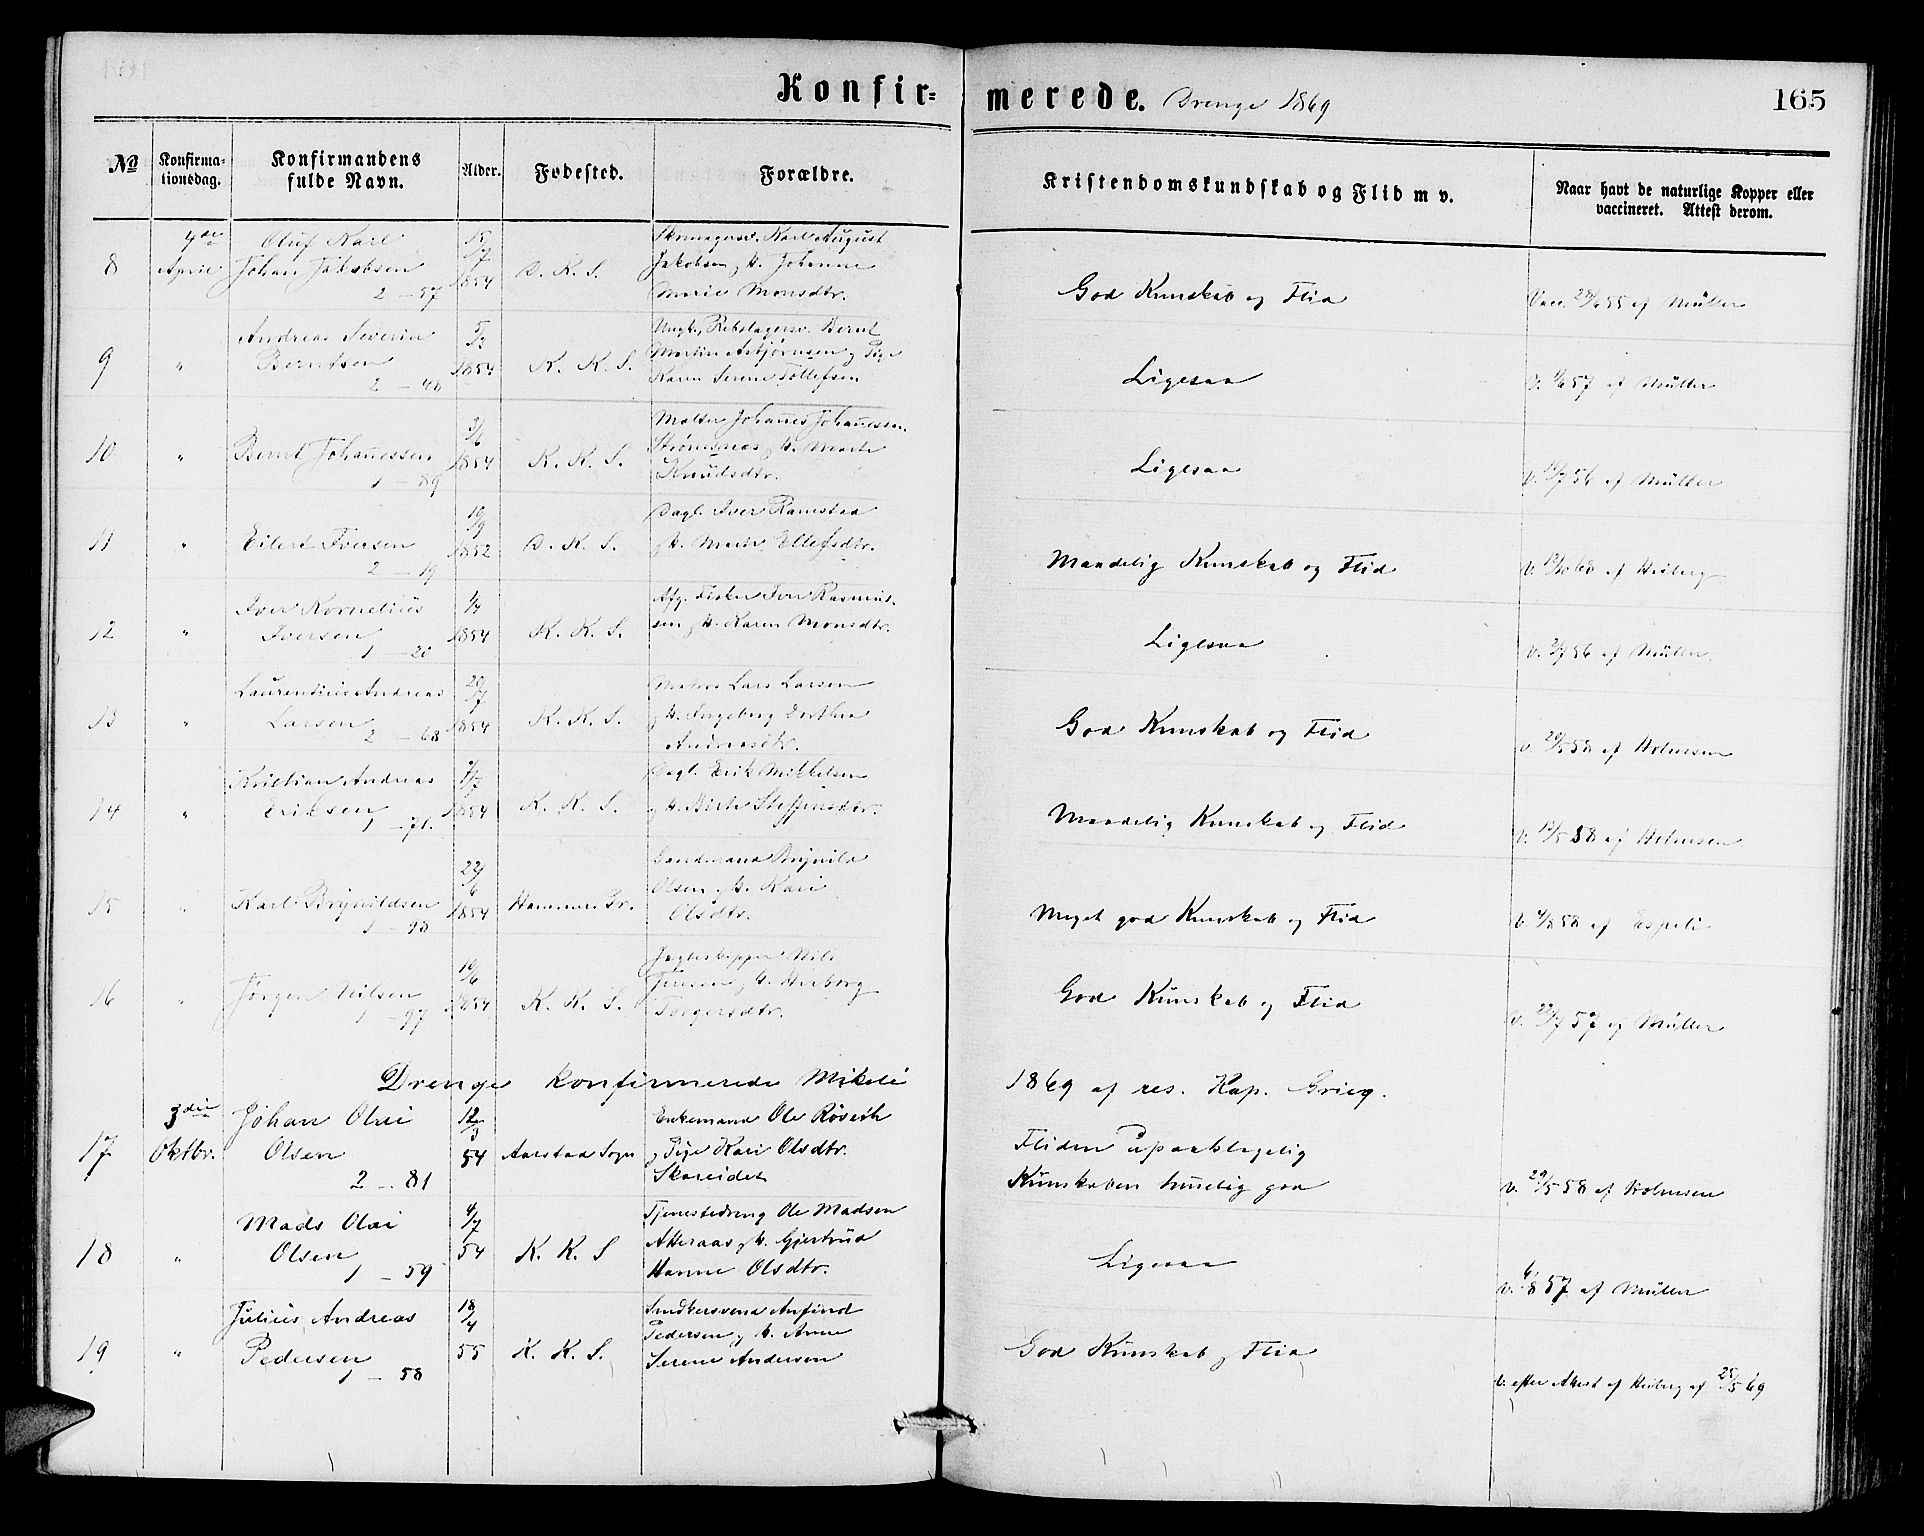 Konfirmerede. Drenge 1869
165
No
Konfirmationsdag.
Konfirmandens fulde Navn.
Alder.
Fødested.
Forældre.
Kristendomskundskab og Flid m v.
Naar havt de naturlige Kopper eller vaccineret. Attest derom.
8
4de April
Oluf Karl
Johan Jakobsen
2 – 57
15/7 1854
D. K. S.
Skomagersv. Karl August
Jakobsen og H. Johanne
Marie Monsdtr.
God Kunskab og Flid
Vacc. 28/6 55 af Müller
9
"
Andreas Severin
Berntsen
2 – 40
1854
K. K. S.
Ungk. Rebslagersv. Bernt
Martin Asbjørnsen og Pige
Karen Serene Tollefsen
Ligesaa
V. 57 af Müller
10
"
Bernt Johanessen
1 – 89
3/6 1854
K. K. S.
Johanes Johanessen
Strømsnes og H. Marte
Knudsdtr.
Ligesaa
V. 56 af Müller
11
"
Eilert Iversen
2 – 19
10/9 1852
D. K. S.
Dagl. Iver Ramstad
og H. Marte Ellefsdtr.
Maadelig Kunskab og Flid
V. 68 af Heiberg
12
"
Iver Kornelius
Iversen
1 – 20
1854
K. K. S.
Afg. Fisker Iver Rasmus-
sen og H. Karen Monsdtr.
Ligesaa
V. 56 af Müller
13
"
Laurentius Andreas
Larsen
2 – 68
20/7 1854
K. K. S.
Matros Lars Larsen
og H. Ingeborg Dorthea
Andreasdtr.
God Kunskab og Flid
v. 29/5 58 af Holmsen
14
"
Kristian Andreas
Eriksen
1 – 71.
1854
K. K. S.
Dagl. Erik Mikkelsen
og H. Birte Steffensdtr.
Maadelig Kunskab og Flid
V. 58 af Holmsen
15
"
Karl Brynildsen
1 – 98
22/6 1854
Hammer Pr.
Gaardmand Brynild
Olsen og H. Kari
Olsdtr.
Meget god Kunskab og Flid
V. 4/8 58 af Espeli
16
"
Jørgen Nilsen
1 – 97
10/6 1854
K. K. S.
Jagteskipper Nils
Jensen og H. Herborg
Torgersdtr.
God Kunskab og Flid
V. 22/7 57 af Müller
Drenge konfirmerede Mikeli 1869 af res. Kap. Grieg.
17
3die Oktbr.
Johan Olai
Olsen
2 – 81
12/3 54
Aarstad Sogn
Enkemand Ole Røseth
og Pige Kari Olsdtr.
Skareidet
Fliden upaaklagelig
Kunskaben temelig god
V. 29/5 58 af Holmsen
18
"
Mads Olai
Olsen
1 – 59
4/7 54
K. K. S
Tjenestedreng Ole Madsen
Atteraas og H. Gjertrud
Hanne Olsdtr.
Ligesaa
V. 6/8 57 af Müller
19
"
Julius Andreas
Pedersen
1 – 58
18/4 55
K. K. S.
Snedkersvend Anfind
Pedersen og H. Anne
Serene Andersen
God Kunskab og Flid
V. efter Attest af Heiberg af 25/5 69